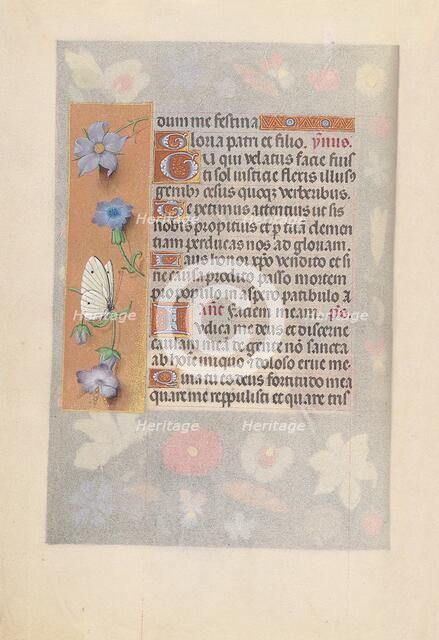 duum me festina
Gloria patri et filio. ymus.
Tu qui velatus facie fuis
ti sol iusticie flexis illusꝰ
genibꝰ cesus quoqꝫ verberibus.
Te petimus attentius ut sis
nobis propitius et p tua clemen
tiam perducas nos ad gloriam.
Laus honor xpo vendito et si
ne causa prodito passo mortem
pro populo in aspero patibulo a
Ante faciem meam. ps.
Iudica me deus et discerne
causam mea de gente nō sancta
ab hoīe iniquo ⁊ doloso erue me.
Quia tu es deus fortitudo mea
quare me reppulisti et quare tris
Heritage
Heritage
Heritage
Heritage
Heritage
Heritage